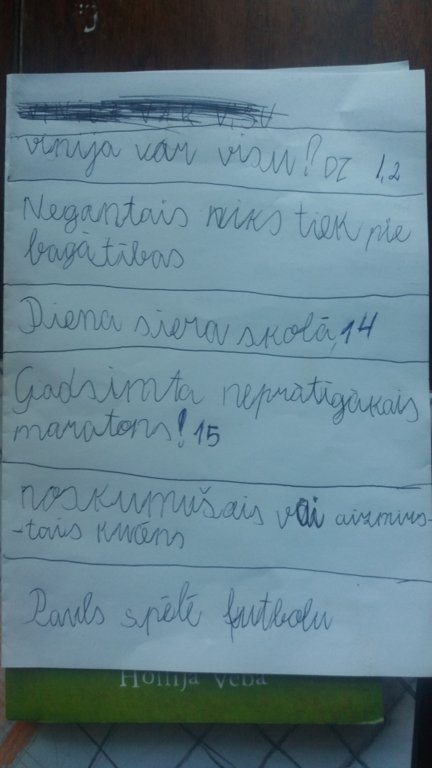 vinija var visu! DZ 1,2
Negantais niks tiek pie
bagātības
Diena siera skolā, 14
Gadsimta neprātīgākais
maratons! 15
noskumušais vai aizmirs-
-tais kwēns
Pauls spēlē futbolu
Hollija Veba